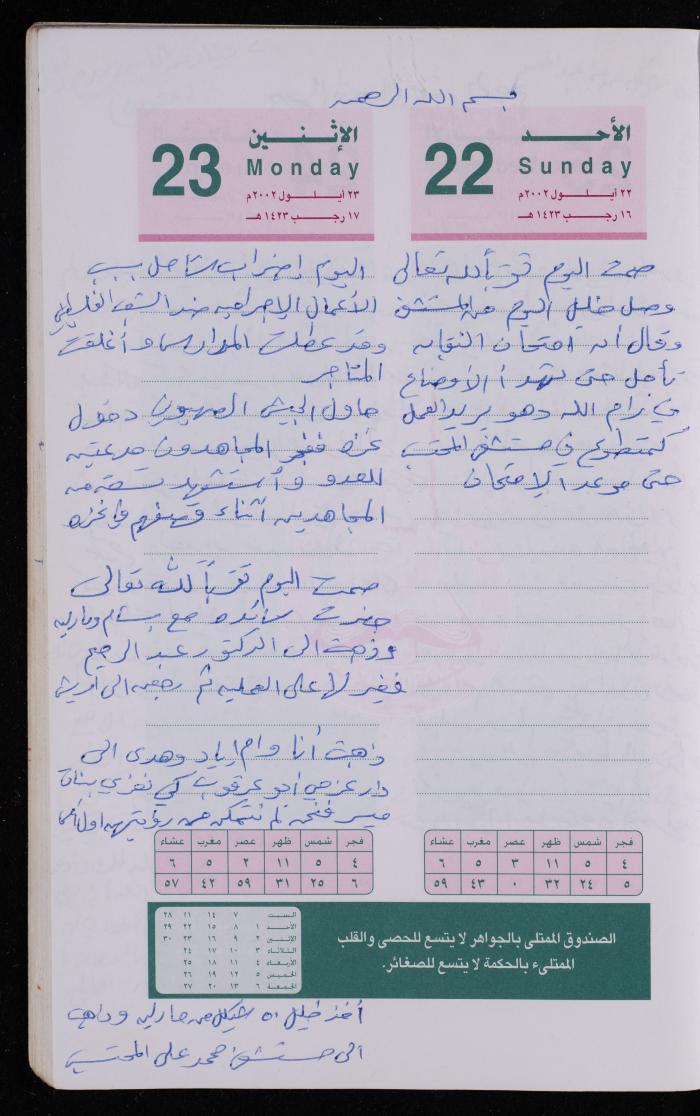 بسم الله الرحمن
الأحد
22
Sunday
٢٢ أيلول ٢٠٠٢م
١٦ رجب ١٤٢٣هـ
صمت اليوم تقرباً لله تعالى
وصل خليل اليوم من المستشفى
وقال أن امتحان النقابه
تأجل حتى تهدأ الأوضاع
في رام الله وهو يريد العمل
كمتطوع في مستشفى المحتسب
حتى موعد الإمتحان
الإثنين
23
Monday
٢٣ أيلول ٢٠٠٢م
١٧ رجب ١٤٢٣هـ
اليوم إضراب شامل بسبب
الأعمال الإجراميه ضد الشعب الفلسطيني
وقد عطلت المدارس وأغلقت
المتاجر
حاول الجيش الصهيوني دخول
غزه ففجر المجاهدون مدرعتين
للعدو وأستشهد تسعة من
المجاهدين أثناء قصفهم في غزه
صمت اليوم تقرباً لله تعالى
حضرت سائده مع بسام وماريه
وذهبت الى الدكتور عبد الرحيم
فغير لها على العمليه ثم رجعن الى
ذهبت أنا وام إياد وهدى الى
دار عزمي أبو عرقوب كي نعزي بنات
ميسر فنحن لم نتمكن من رؤيتهن اول
فجر شمس ظهر عصر مغرب عشاء
٤ ٥ ١١ ٣ ٥ ٦
٥ ٢٤ ٣٢ ٠ ٤٣ ٥٩
فجر شمس ظهر عصر مغرب عشاء
٤ ٥ ١١ ٢ ٥ ٦
٦ ٢٥ ٣١ ٥٩ ٤٢ ٥٧
الصندوق الممتلى بالجواهر لا يتسع للحصى والقلب
الممتلىء بالحكمة لا يتسع للصغائر.
السبت ٧ ١٤ ٢١ ٢٨
الأحد ١ ٨ ١٥ ٢٢ ٢٩
الإثنين ٢ ٩ ١٦ ٢٣ ٣٠
الثلاثاء ٣ ١٠ ١٧ ٢٤
الأربعاء ٤ ١١ ١٨ ٢٥
الخميس ٥ ١٢ ١٩ ٢٦
الجمعة ٦ ١٣ ٢٠ ٢٧
أخذ خليل ٥١ شيكل من ماريه وذهب
الى مستشفى محمد علي المحتسب